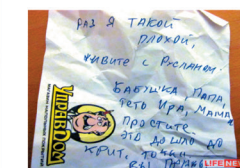 РАЗ Я ТАКОЙ
ПЛОХОЙ,
ЖИВИТЕ С РУСЛАНОМ.
БАБУШКА, ПАПА,
ТЕТО ИРА, МАМА
ПРОСТИТЕ
ЭТО ДОШЛО ДО
КРИТ. ТОЧКИ
УПРАВДОМ
LIFENE